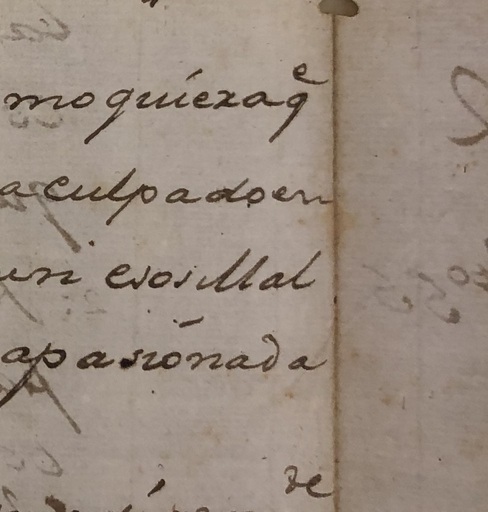 mo quiera q̃e
a culpado en
un esos Mal
apasionada
de